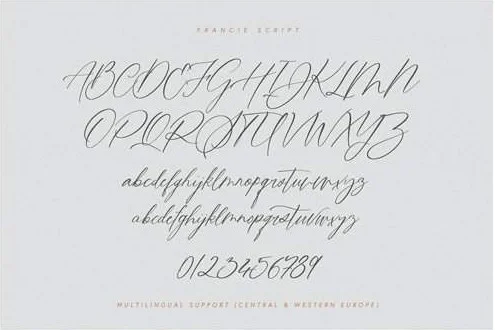 FRANCIE SCRIPT
ABCDEFGHIJKLMN
OPQRSTUVWXYZ
abcdefghijklmnopqrstuvwxyz
abcdefghijklmnopqrstuvwxyz
0123456789
MULTILINGUAL SUPPORT (CENTRAL & WESTERN EUROPE)